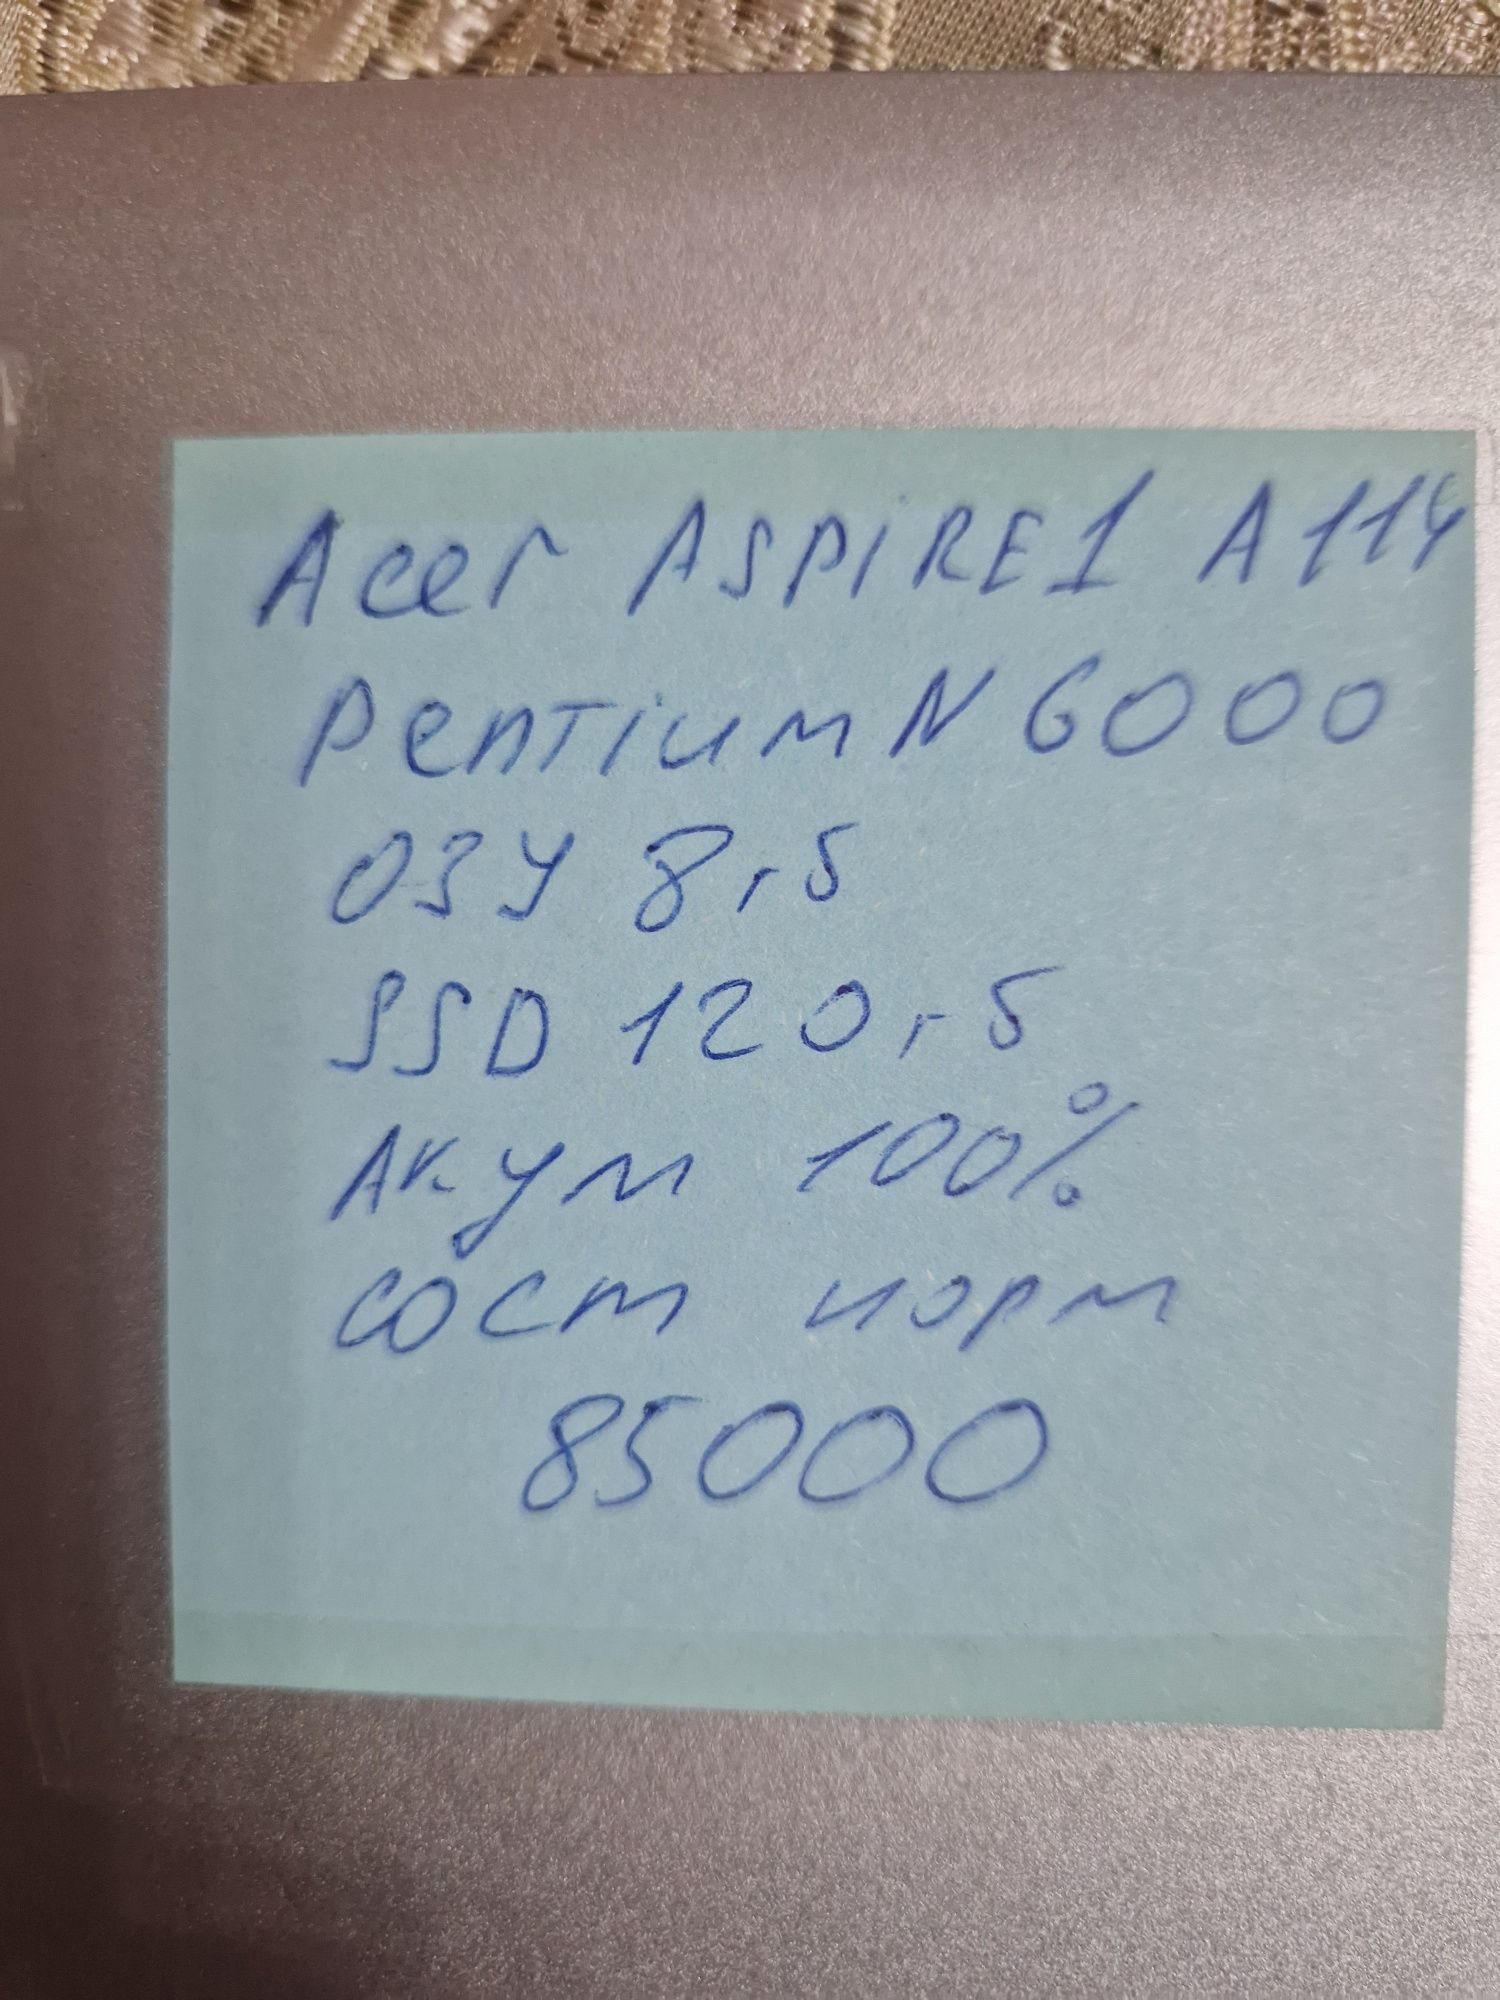 Acer ASPIRE 1 A114
Pentium N 6000
ОЗУ 8 гб
SSD 120 гб
Акум 100%
сост норм
85000